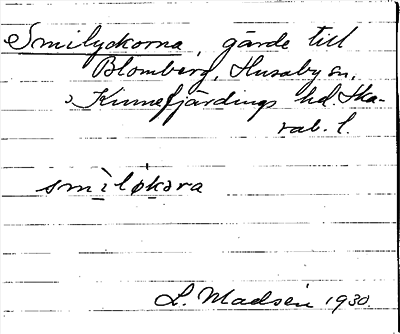 Smilyckorna, gärde till
Blomberg, Husaby sn,
Kinnefjärdings hd. Ska-
rab. l.
smiløkara
L. Madsén 1930.